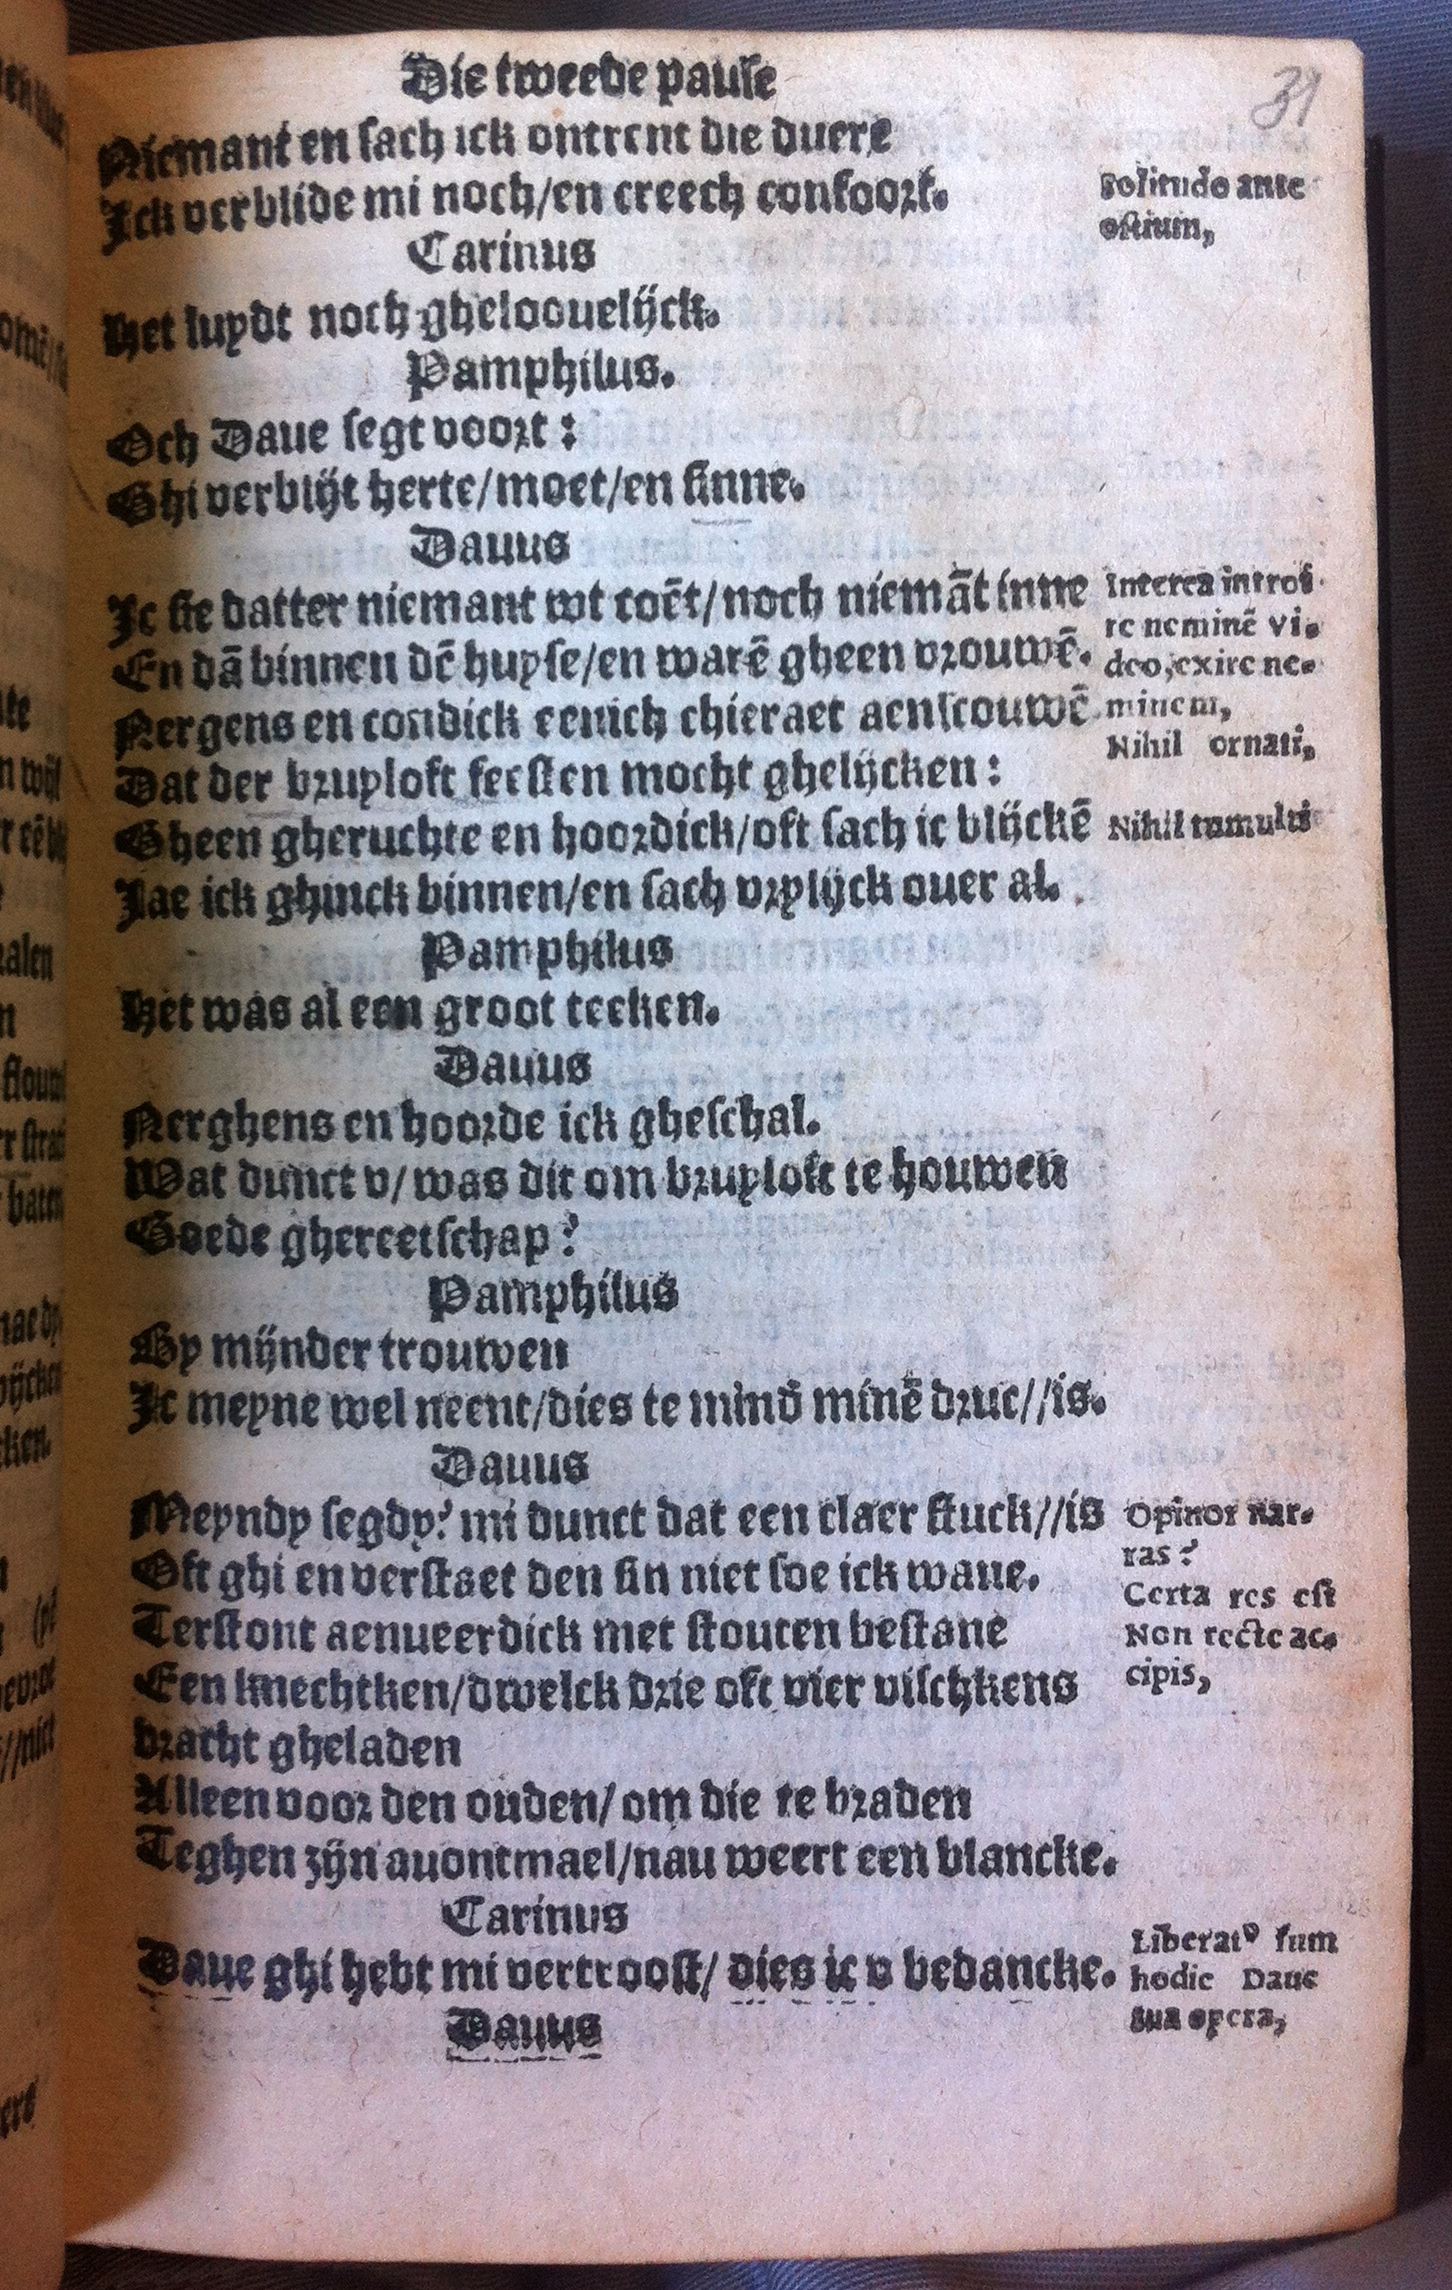 Die tweede pause
31
Niemant en sach ick ontrent die duere
Ick verblide mi noch/en creech confoort.
Solitudo ante
ostium,
Carinus
Het luydt noch gheloouelijck.
Pamphilus.
Och Daue segt voort:
Ghi verblijt herte/moet/en sinne.
Dauus
Ic sie datter niemant wt coēt/noch niemāt inne
En dā binnen dē huyse/en warē gheen vrouwē.
Nergens en condick eenich chieraet aenscouwē
Interea introi
re neminē vi-
deo, exire ne-
minem,
Nihil ornati,
Dat der bruyloft feesten mocht ghelijcken:
Gheen gheruchte en hoordick/oft sach ic blijckē
Nihil tumulti
Jae ick ghinck binnen/en sach vrylijck ouer al.
Pamphilus
Het was al een groot teeken.
Dauus
Nerghens en hoorde ick gheschal.
Wat dunct v/was dit om bruyloft te houwen
Goede ghereetschap?
Pamphilus
By mijnder trouwen
Ic meyne wel neent/dies te mind' minē druc//is.
Dauus
Meyndy segdy? mi dunct dat een claer stuck//is
Oft ghi en verstaet den sin niet soe ick wane.
Opinor nar-
ras?
Certa res est
Non recte ac-
cipis,
Terstont aenueerdick met stouten bestane
Een knechtken/dwelck drie oft vier vischkens
bracht gheladen
Alleen voor den ouden/om die te braden
Teghen zijn auontmael/nau weert een blancke.
Carinus
Daue ghi hebt mi vertroost/dies ic v bedancke.
Liberatꝰ sum
hodie Daue
tua opera,
Dauus